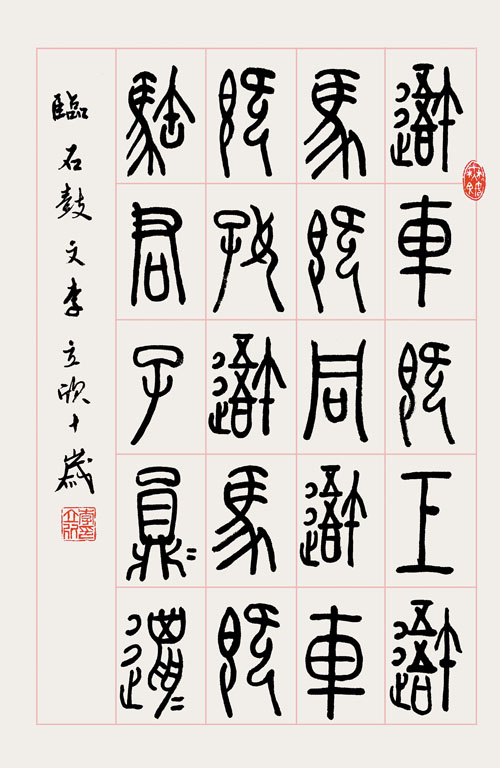 吾車既工吾
馬既同吾車
既好吾馬既
君子員邋
臨石鼓文李立欣十歲